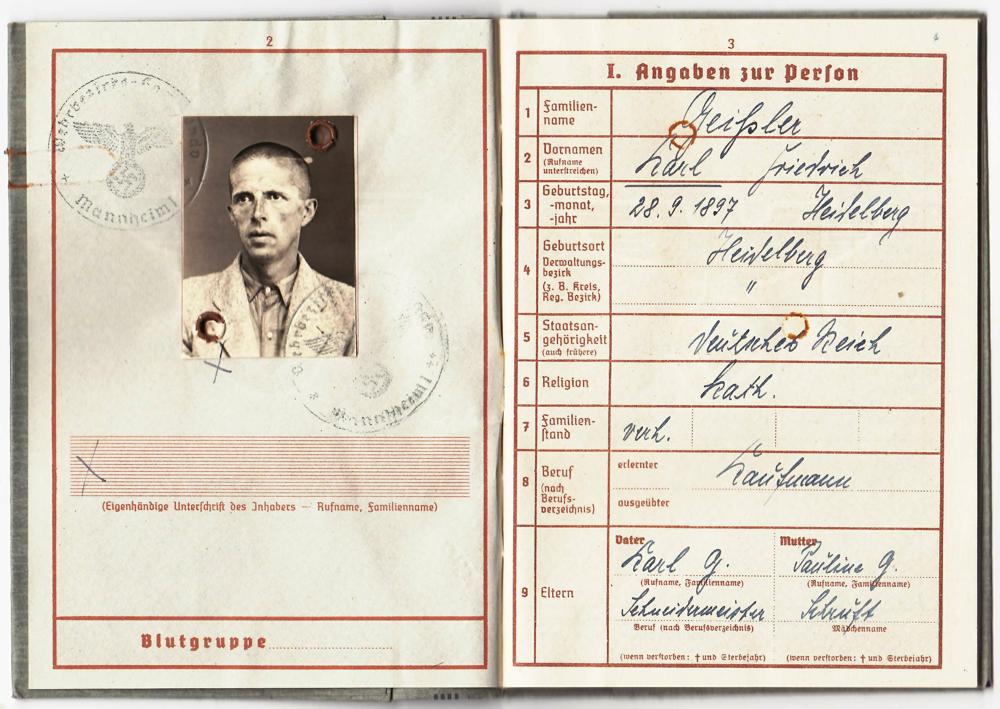 2
Wehrbezirks-Ko
Mannheim I
Wehrbezirks
Mannheim I
(Eigenhändige Unterschrift des Inhabers — Rufname, Familienname)
Blutgruppe
3
I. Angaben zur Person
1 Familien-
name
Geißler
2 Vornamen
(Rufname
unterstreichen)
Karl Friedrich
3 Geburtstag,
-monat,
-jahr
28. 9. 1897 Heidelberg
4 Geburtsort
Verwaltungs-
bezirk
(z. B. Kreis,
Reg. Bezirk)
Heidelberg
"
5 Staatsan-
gehörigkeit
(auch frühere)
Deutsches Reich
6 Religion
kath.
7 Familien-
stand
verh.
8 Beruf
(nach
Berufs-
verzeichnis)
erlernter
Kaufmann
ausgeübter
9 Eltern
Vater
Karl G.
(Rufname, Familienname)
Schneidermeister
Beruf (nach Berufsverzeichnis)
(wenn verstorben: † und Sterbejahr)
Mutter
Pauline G.
(Rufname, Familienname)
Mädchenname
(wenn verstorben: † und Sterbejahr)